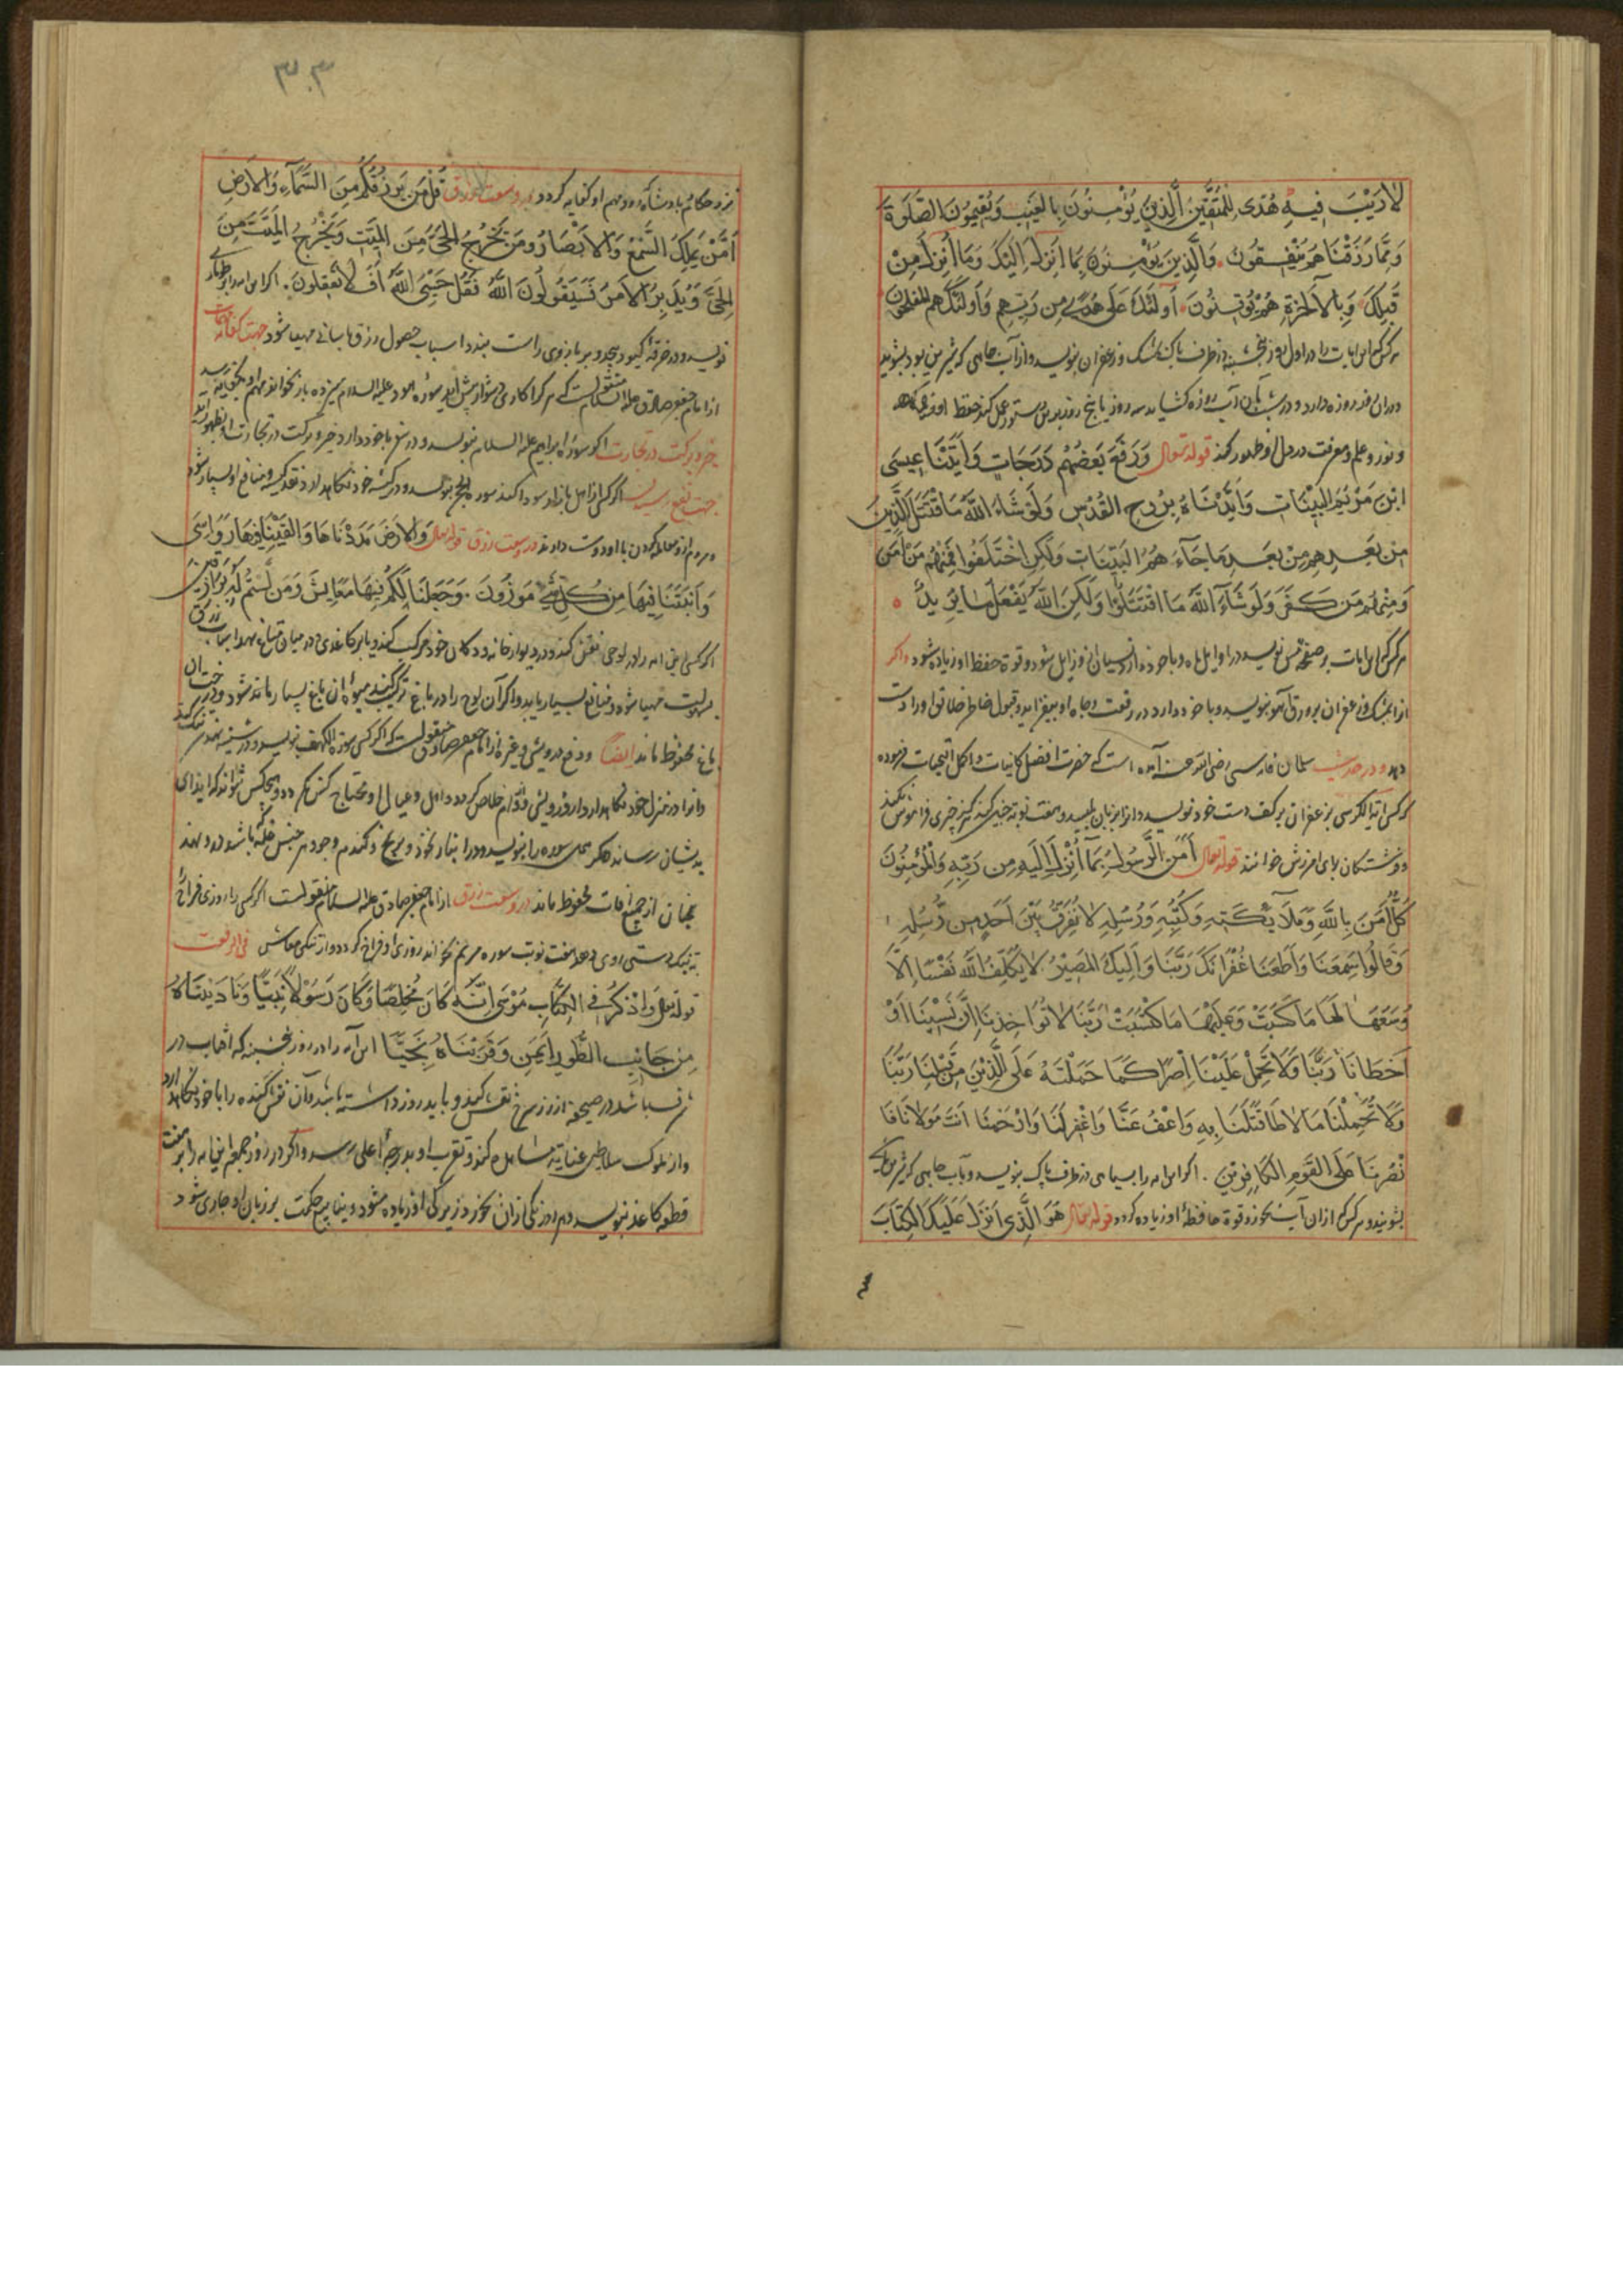 لَا رَيْبَ فِيهِ هُدًى لِلْمُتَّقِينَ الَّذِينَ يُؤْمِنُونَ بِالْغَيْبِ وَيُقِيمُونَ الصَّلَوةَ
وَمِمَّا رَزَقْنَاهُمْ يُنْفِقُونَ وَالَّذِينَ يُؤْمِنُونَ بِمَا أُنْزِلَ إِلَيْكَ وَمَا أُنْزِلَ مِنْ
قَبْلِكَ وَبِالْآخِرَةِ هُمْ يُوقِنُونَ أُولَئِكَ عَلَى هُدًى مِنْ رَبِّهِمْ وَأُولَئِكَ هُمُ الْمُفْلِحُونَ
هر که این ایات را در اول روز پنجشنبه در ظرف پاک بمشک و زعفران بنویسد و از آب چاهی که شیرین بود بشوید
دران روز روزه دارد و در شب بآن آب روزه کشاید سه روز یا پنج روز بدین دستور عمل کند حفظ او
و نور و علم و معرفت در دل او ظهور کند قوله تعالی وَرَفَعَ بَعْضَهُمْ دَرَجَاتٍ وَآتَيْنَا عِيسَى
ابْنَ مَرْيَمَ الْبَيِّنَاتِ وَأَيَّدْنَاهُ بِرُوحِ الْقُدُسِ وَلَوْ شَاءَ اللَّهُ مَا اقْتَتَلَ الَّذِينَ
مِنْ بَعْدِهِمْ مِنْ بَعْدِ مَا جَاءَهُمُ الْبَيِّنَاتُ وَلَكِنِ اخْتَلَفُوا فَمِنْهُمْ مَنْ آمَنَ
وَمِنْهُمْ مَنْ كَفَرَ وَلَوْ شَاءَ اللَّهُ مَا اقْتَتَلُوا وَلَكِنَّ اللَّهَ يَفْعَلُ مَا يُرِيدُ
هر که این ایات بر صفحه مس نویسد در اوایل ماه و با خود دارد نسیان از و زایل شود و قوة حفظ او زیاده شود و اکر
انرا بمشک و زعفران بر ورق آهو بنویسد و با خود دارد در رفعت و جاه او بیفزاید و قبول خاطر خلایق او را دست
دهد و در حدیث سلمان فارسی رضی الله عنه آمده است که حضرت افضل کاینات و اکمل التحیات فرموده
هر که ایة الکرسی بزعفران بر کف دست خود نویسد و انرا بزبان بلیسد و هفت نوبة چنین کند هرکز چیزی فراموش نکند
و فرشتکان برای امرزش خوانند قوله تعالی آمَنَ الرَّسُولُ بِمَا أُنْزِلَ إِلَيْهِ مِنْ رَبِّهِ وَالْمُؤْمِنُونَ
كُلٌّ آمَنَ بِاللَّهِ وَمَلَائِكَتِهِ وَكُتُبِهِ وَرُسُلِهِ لَا نُفَرِّقُ بَيْنَ أَحَدٍ مِنْ رُسُلِهِ
وَقَالُوا سَمِعْنَا وَأَطَعْنَا غُفْرَانَكَ رَبَّنَا وَإِلَيْكَ الْمَصِيرُ لَا يُكَلِّفُ اللَّهُ نَفْسًا إِلَّا
وُسْعَهَا لَهَا مَا كَسَبَتْ وَعَلَيْهَا مَا اكْتَسَبَتْ رَبَّنَا لَا تُؤَاخِذْنَا إِنْ نَسِينَا أَوْ
أَخْطَانَا رَبَّنَا وَلَا تَحْمِلْ عَلَيْنَا إِصْرًا كَمَا حَمَلْتَهُ عَلَى الَّذِينَ مِنْ قَبْلِنَا رَبَّنَا
وَلَا تُحَمِّلْنَا مَا لَا طَاقَةَ لَنَا بِهِ وَاعْفُ عَنَّا وَاغْفِرْ لَنَا وَارْحَمْنَا أَنْتَ مَوْلَانَا فَا
نْصُرْنَا عَلَى الْقَوْمِ الْكَافِرِينَ اکر این ایه را بسیاهی در ظرف پاک بنویسد و بآب چاهی که شیرین باشد
بشویند و هر که ازان آب بخورد قوة حافظهٔ او زیاده کردد قوله تعالی هُوَ الَّذِي أَنْزَلَ عَلَيْكَ الْكِتَابَ
٣٠٣
نزد حکام و پادشاه رود مهم او کفایه کردد در وسعت رزق قُلْ مَنْ يَرْزُقُكُمْ مِنَ السَّمَاءِ وَالْأَرْضِ
أَمَّنْ يَمْلِكُ السَّمْعَ وَالْأَبْصَارَ وَمَنْ يُخْرِجُ الْحَيَّ مِنَ الْمَيِّتِ وَيُخْرِجُ الْمَيِّتَ مِنَ
الْحَيِّ وَيُدَبِّرُ الْأَمْرَ فَسَيَقُولُونَ اللَّهُ فَقُلْ حَسْبِيَ اللَّهُ أَفَلَا تَعْقِلُونَ اکر این ایه را بر
نویسد و در خرقهٔ کبود پیچد و بر بازوی راست بندد اسباب حصول رزق باسانی مهیا شود جهت کفایة مهمات
از امام جعفر صادق علیه السلام منقولست که هر کرا کاری دشوار پیش اید سوره هود علیه السلام سیزده بار بخواند مهم او بکفایة رسد
خیر و برکت در تجارت اکر سورهٔ ابراهیم علیه السلام بنویسد و در متاع با خود دارد خیر و برکت در تجارت او ظهور
جهت نفع رسیدن اکر کسی از اهل بازار و سودا کند سوره الحج بنویسد و در کیسه خود نکاهدارد نقد کیسه و منافع او بسیار شود
و مردم از و معامله کردن با او دوست دارند در وسعت رزق قوله تعالی وَالْأَرْضَ مَدَدْنَاهَا وَأَلْقَيْنَا فِيهَا رَوَاسِيَ
وَأَنْبَتْنَا فِيهَا مِنْ كُلِّ شَيْءٍ مَوْزُونٍ وَجَعَلْنَا لَكُمْ فِيهَا مَعَايِشَ وَمَنْ لَسْتُمْ لَهُ بِرَازِقِينَ
اکر کسی این ایه را در لوحی نقش کند و در دیوار خانه و دکان خود مرکب کند و یا بر کاغذی در میان متاع نهد اسباب رزق
بسهولت مهیا شود و منافع بسیار یابد و اکر آن لوح را در باغ ترکیب کنند میوه ان باغ بسیار ماند شود و درختان
باغ محفوظ ماند ایضا و دفع درویشی و غیره از امام جعفر صادق منقولست که اکر کسی سورة الکهف بنویسد و در شیشه نهد سر تنک
وانرا در منزل خود نکاهدارد از درویشی و وام خلاص کردد و اهل و عیال او محتاج کس نکردد و هیچکس نتواند که ایذای
بدیشان رساند و اکر همین سوره را بنویسد و در انبار نخود و برنج و کندم و جو و هر جنس غله که باشد در و نهند
نجهان از جمیع افات محفوظ ماند در وسعت رزق از امام جعفر صادق علیه السلام منقولست اکر کسی را روزی فراخ
تنکدستی روی دهد هفت نوبت سوره مریم بخواند روزی او فراخ کردد و از تنکی معاش فی الرفعت
قوله تعالی وَاذْكُرْ فِي الْكِتَابِ مُوسَى إِنَّهُ كَانَ مُخْلَصًا وَكَانَ رَسُولًا نَبِيًّا وَنَادَيْنَاهُ
مِنْ جَانِبِ الطُّورِ الْأَيْمَنِ وَقَرَّبْنَاهُ نَجِيًّا این آیه را در روز پنجشنبه که افتاب در
شرف باشد در صحیفه از زر سرخ نقش کند و باید روزه داشته باشد و آن نقش کنده را با خود نکاهدارد
و از ملوک و سلاطین عنایة شامل کند و تقرب او بدرجهٔ اعلی رسد و اکر در روز جمعه این ایه را بر هفت
قطعه کاغذ بنویسد و هر روز یکی ازان بخورد زیرکی او زیاده شود و ینابیع حکمت بر زبان او جاری شود